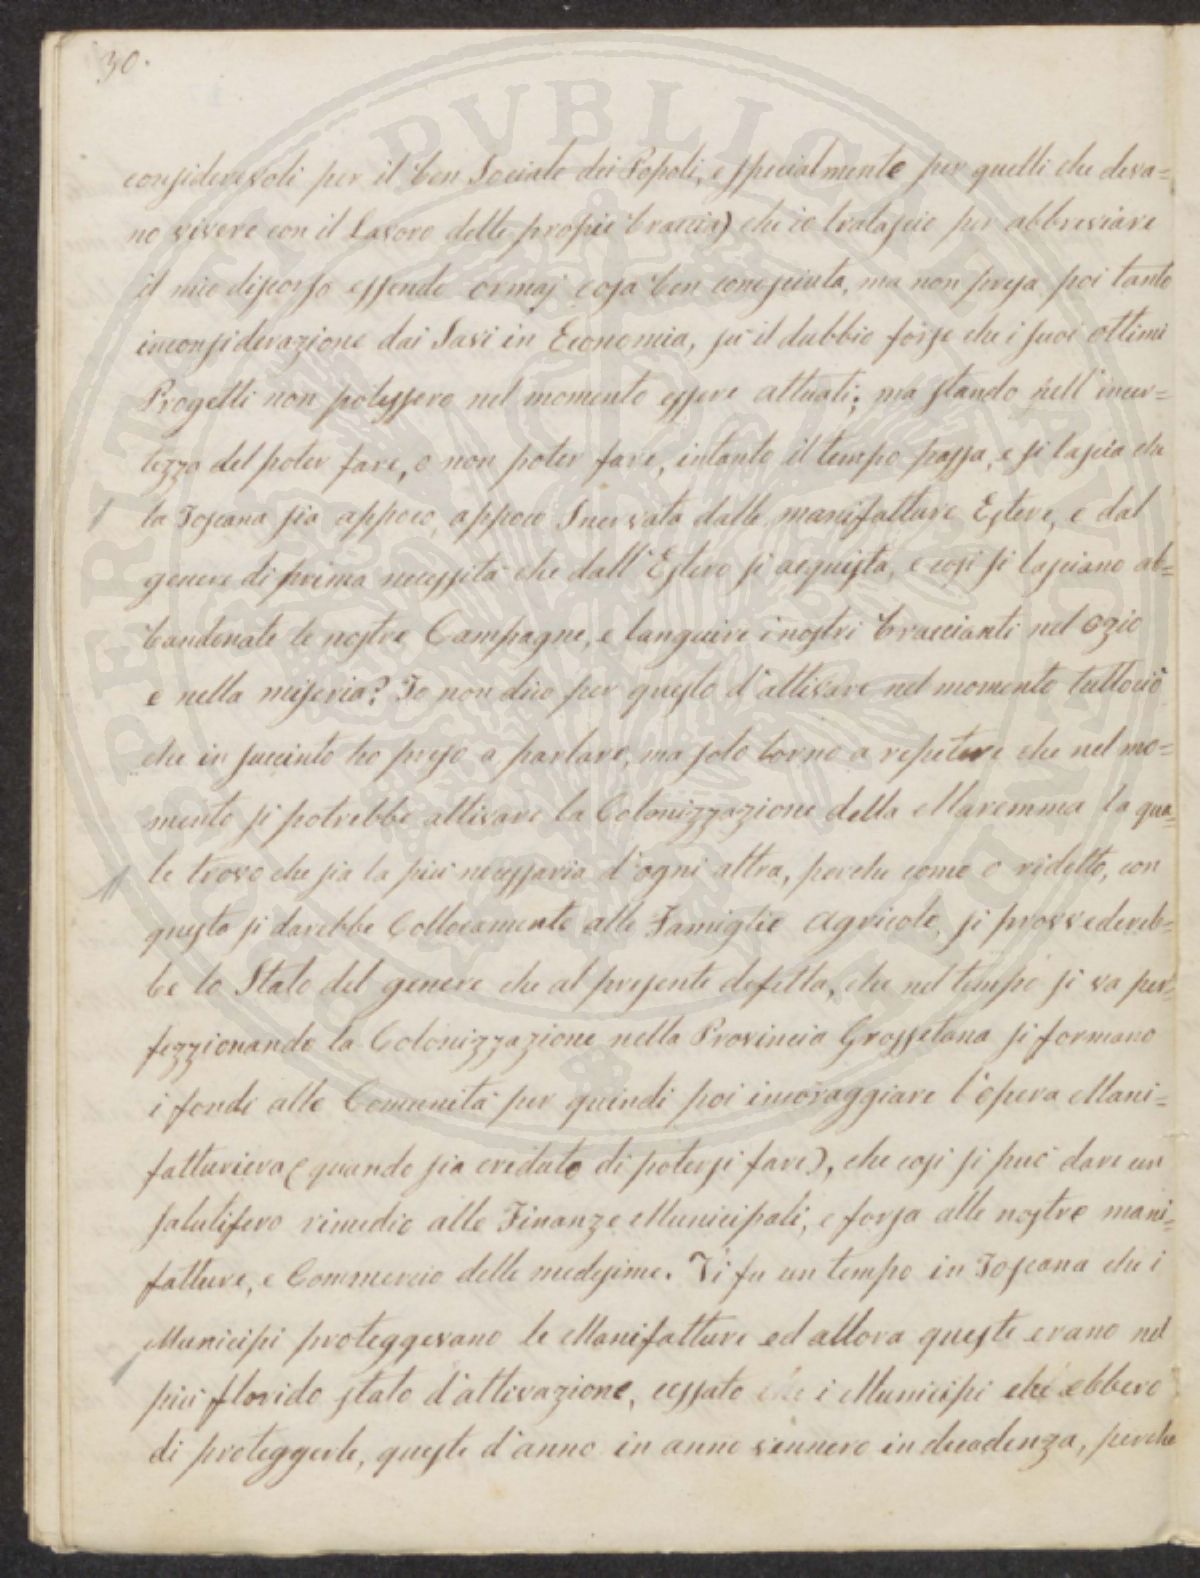 30.
considerevoli per il ben Sociale dei Popoli, e specialmente per quelli che deva=
no vivere con il Lavoro delle propie braccia) che io tralascio per abbreviare
il mio discorso essendo ormaj cosa ben conosciuta, ma non presa poi tanto
inconsiderazione dai Savi in Economia, sù il dubbio forse che i suoi ottimi
Progetti non potessero nel momento essere attuati; ma stando nell'incer=
tezza del poter fare, o non poter fare, intanto il tempo passa, e si lascia che
la Toscana sia appoco, appoco Snervata dalle manifatture Estere, e dal
genere di prima necessità che dall'Estero si acquista, e così si lasciano ab=
bandonate le nostre Campagne, e languire i nostri braccianti nel ozio
e nella miseria? Io non dico per questo d'attivare nel momento tuttociò
che in succinto ho preso a parlare, ma solo torno a repetere che nel mo=
mento si potrebbe attivare la Colonizzazione della Maremma la qua=
le trovo che sia la più necessaria d'ogni altra, perche come o ridetto, con
questo si darebbe Collocamento alle Famiglie Agricole, si provvedereb=
be lo Stato del genere che al presente difetta, che nel tempo si va per=
fezzionando la Colonizzazione nella Provincia Grossetana si formano
i fondi alle Comunità per quindi poi incoraggiare l'opera Mani=
fatturiera (quando sia creduto di potersi fare), che così si può dare un
salutifero rimedio alle Finanze Municipali, e forsa alle nostre mani=
fatture, e Commercio delle medesime. Vi fu un tempo in Toscana che i
Municipi proteggevano le Manifatture ed allora queste erano nel
più florido stato d'attivazione, cessato che i Municipi ebbero
di proteggerle, queste d'anno in anno vennero in decadenza, perche
SPERITE PUBLICATE